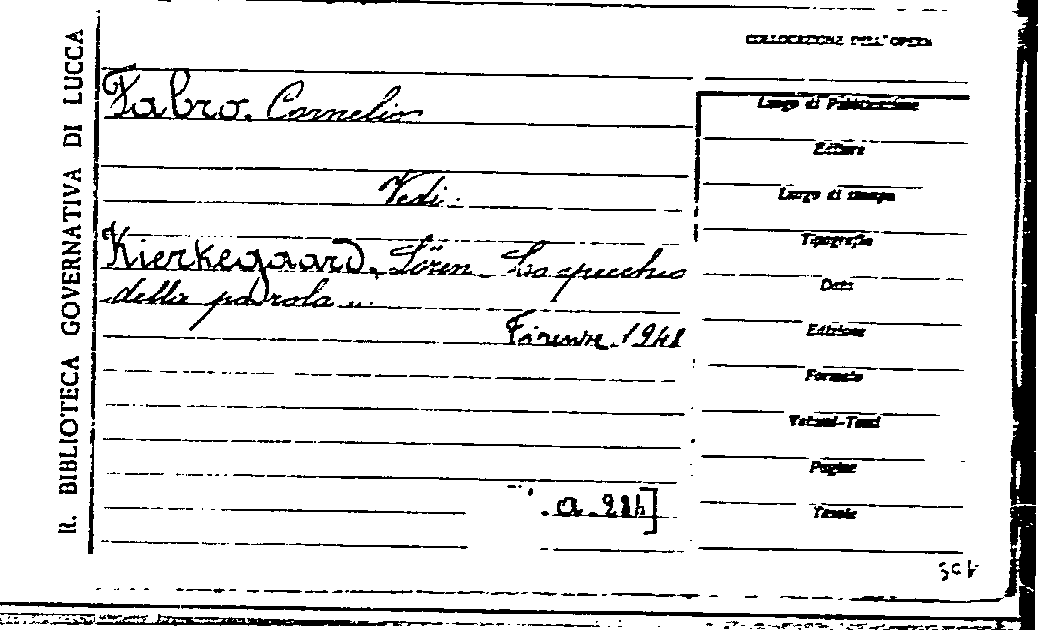 R. BIBLIOTECA GOVERNATIVA DI LUCCA
COLLOCAZIONE DELL'OPERA
Fabro, Cornelio
Vedi.
Kierkegaard, Sören - Lo specchio
della parola ...
Firenze 1948
Luogo di Pubblicazione
Editore
Luogo di stampa
Tipografia
Data
Edizione
Formato
Volumi-Tomi
Pagine
Tavole